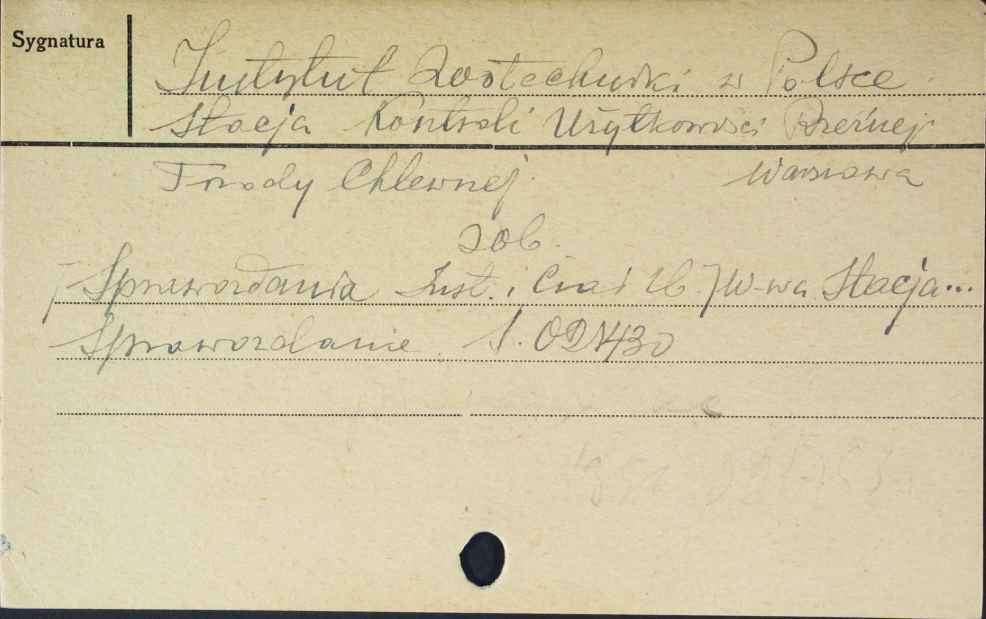 Sygnatura
Instytut Zootechniki w Polsce
Stacja Kontroli Użytkowości Rzeźnej
Trzody Chlewnej Warszawa
zob.
Sprawozdania Inst. i W-wa Stacja...
Sprawozdanie